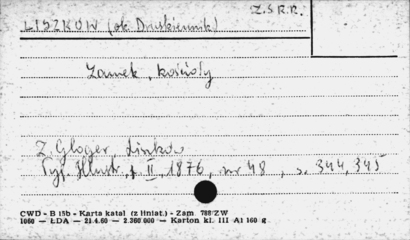 Z.S.R.R.
LISZKÓW (ok. Druskiennik)
Zamek, kościoły
Z. Gloger Liszków
Tyg. Illustr. t. II, 1876, nr 48, s. 344, 345
CWD - B 15b - Karta katal. (z liniat.) - Zam. 788/ZW
1060 — ŁDA — 21.4.60 — 2.360 000 — Karton kl. III A1 160 g